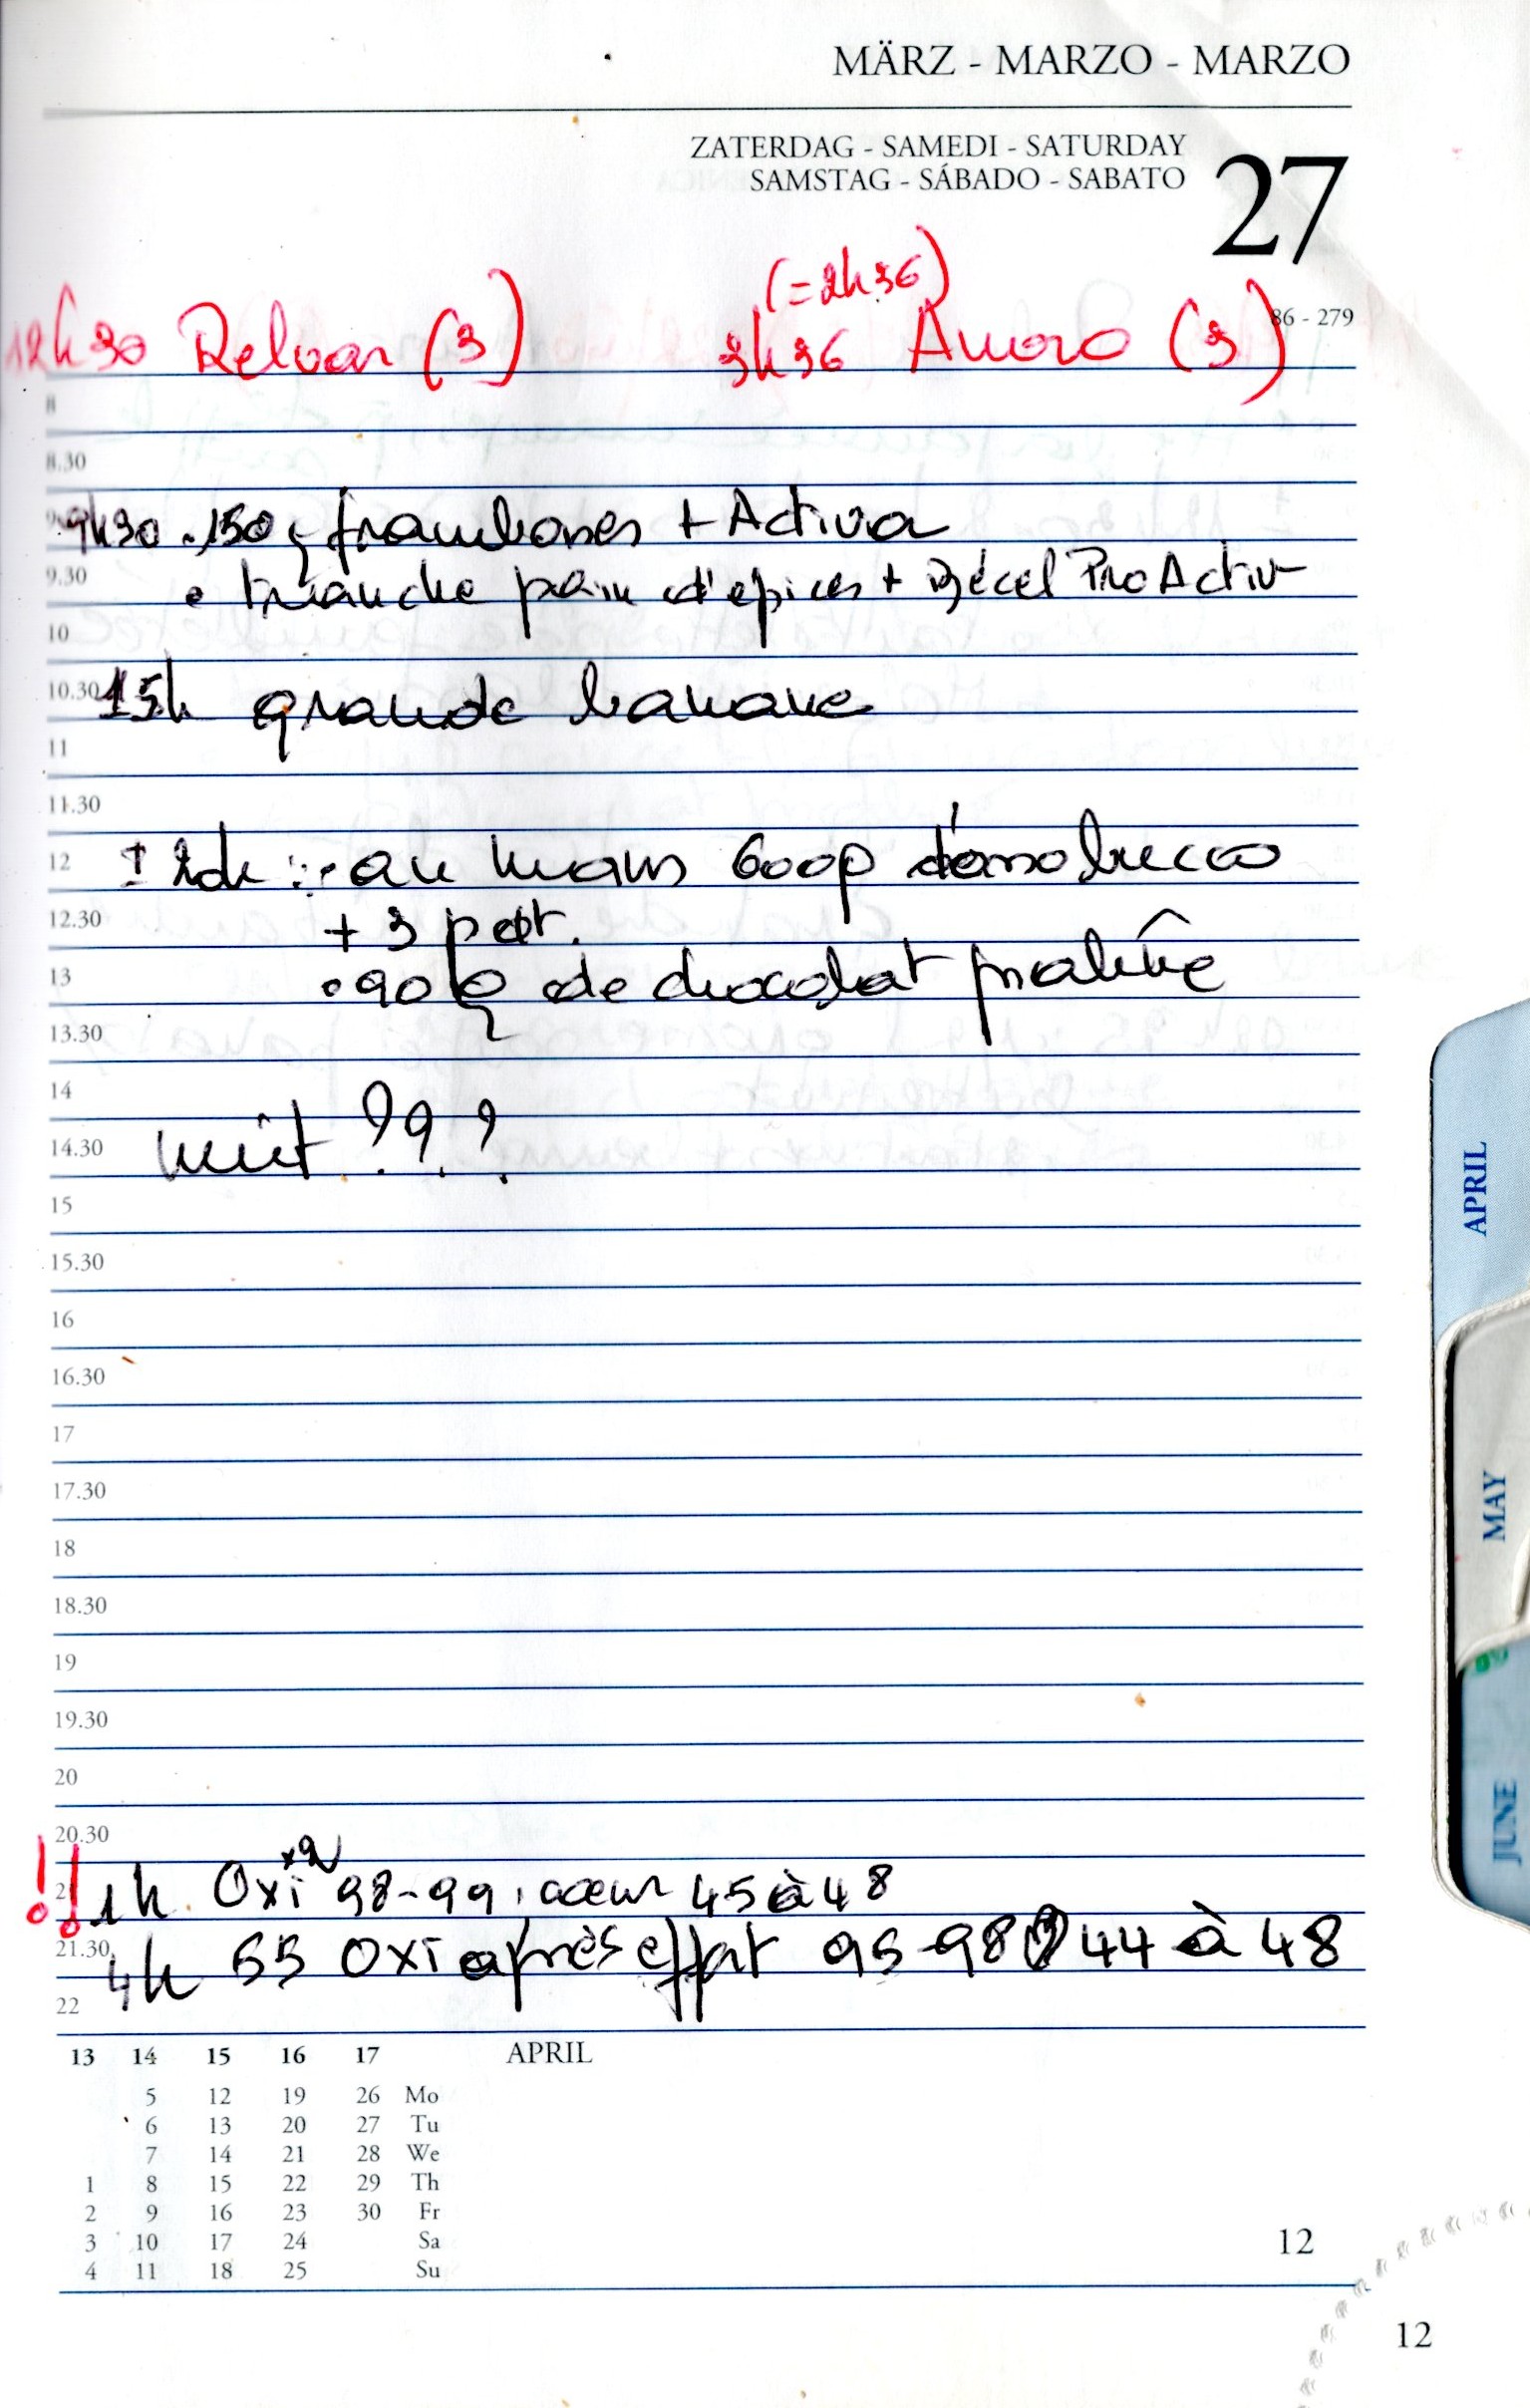 MÄRZ - MARZO - MARZO
ZATERDAG - SAMEDI - SATURDAY
SAMSTAG - SÁBADO - SABATO
27
86 - 279
(=2h36)
12h30 Relvar (3) 3h36 Amoro (3)
8
8.30
9h30 • 150g framboises + Activa
9.30
• tranche pain d'épices + Bécel ProActiv
10
10.30
15h grande banane
11
11.30
12
± 20h : • au moins 600g d'ossobucco
12.30
+ 3 pdt.
13
• 90 g de chocolat praliné
13.30
14
14.30
nuit ???
15
15.30
16
16.30
17
17.30
18
18.30
19
19.30
20
20.30
!! 1h Oxi x2 98-99, coeur 45 à 48
21.30
4h 55 Oxi après effort 95-98 44 à 48
22
13 14 15 16 17 APRIL
5 12 19 26 Mo
6 13 20 27 Tu
7 14 21 28 We
1 8 15 22 29 Th
2 9 16 23 30 Fr
3 10 17 24 Sa
4 11 18 25 Su
12
12
APRIL
MAY
JUNE